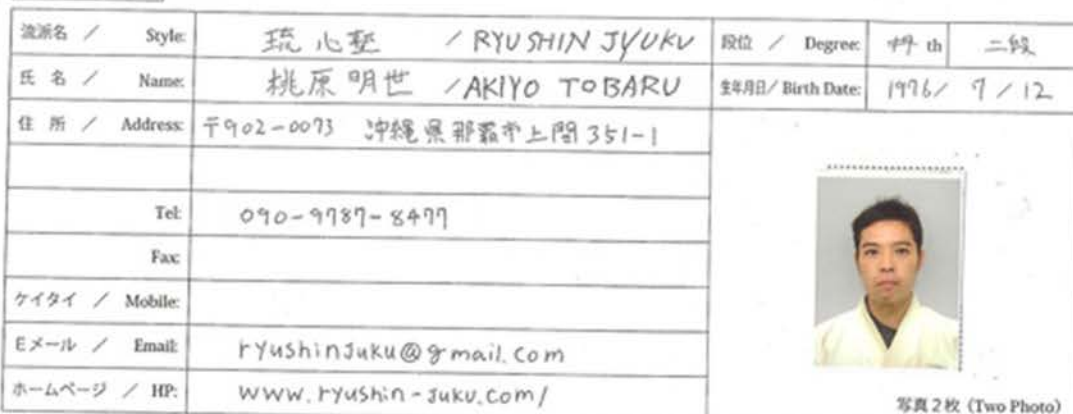 流派名 / Style: 琉心塾 / RYUSHIN JYUKU 段位 / Degree: th 二段
氏 名 / Name: 桃原明世 / AKIYO TOBARU 生年月日/ Birth Date: 1976/ 7 / 12
住 所 / Address: 〒902-0073 沖縄県那覇市上間351-1
Tel: 090-9787-8477
Fax:
ケイタイ / Mobile:
Eメール / Email: ryushinjuku@gmail.com
ホームページ / HP: www.ryushin-juku.com/
写真2枚 (Two Photo)